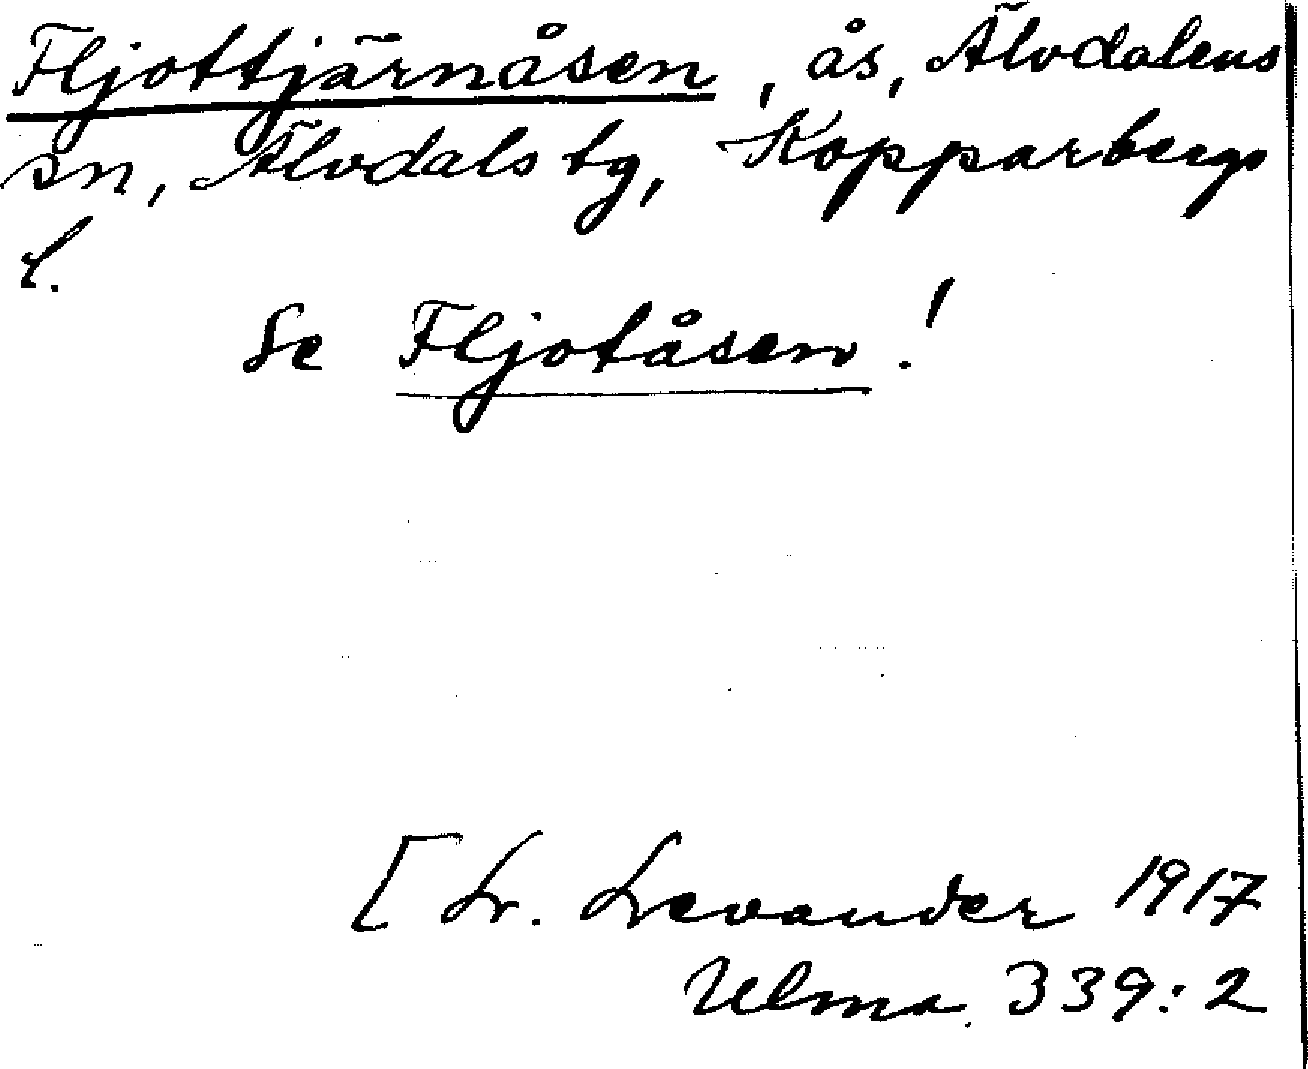 Fljottjärnåsen, ås, Älvdalens
sn, Älvdals tg, Kopparbergs
l.
Se Fljotåsen!
[ L. Levander 1917
Ulma. 339:2